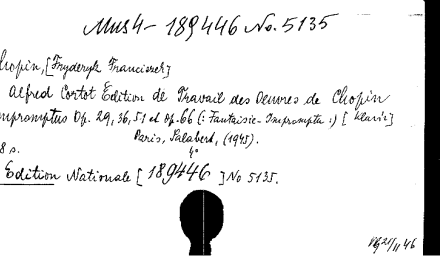 Mus 4- 189446 No. 5135
Chopin, [Fryderyk Franciszek]
Alfred Cortot Édition de Travail des Oeuvres de Chopin
Impromptus Op. 29, 36, 51 et op. 66 (: Fantaisie-Impromptu :) [Klavir]
Paris, Salabert, (1945).
4°
8 s.
Edition Nationale [189446] No 5135.
21/11 46